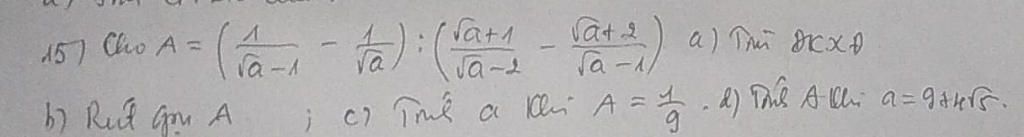 15) Cho A = (1/(√a-1) - 1/√a) : ((√a+1)/(√a-2) - (√a+2)/(√a-1)) a) Tìm ĐKXĐ
b) Rút gọn A ; c) Tính a khi A = 1/9 . d) Tính A khi a = 9+4√5.